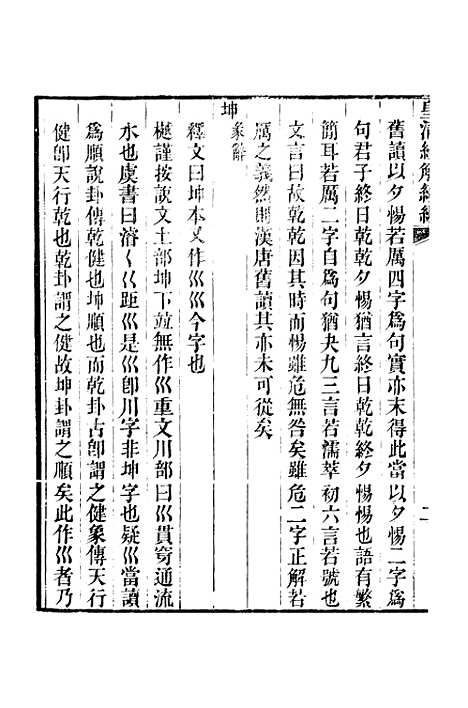 皇清經解續編
二
舊讀以夕惕若厲四字爲句實亦未得此當以夕惕二字爲
句君子終日乾乾夕惕猶言終日乾乾終夕惕惕也語有繁
簡耳若厲二字自爲句猶夬九三言若濡萃初六言若號也
文言曰故乾乾因其時而惕雖危無咎矣雖危二字正解若
厲之義然則漢唐舊讀其亦未可從矣
坤
彖辭
釋文曰坤本又作巛巛今字也
樾謹按說文土部坤下竝無作巛重文川部曰巛貫穿通流
水也虞書曰濬〈巛距巛是巛卽川字非坤字也疑巛當讀
爲順說卦傳乾健也坤順也而乾卦古卽謂之健象傳天行
健卽天行乾也乾卦謂之健故坤卦謂之順矣此作巛者乃